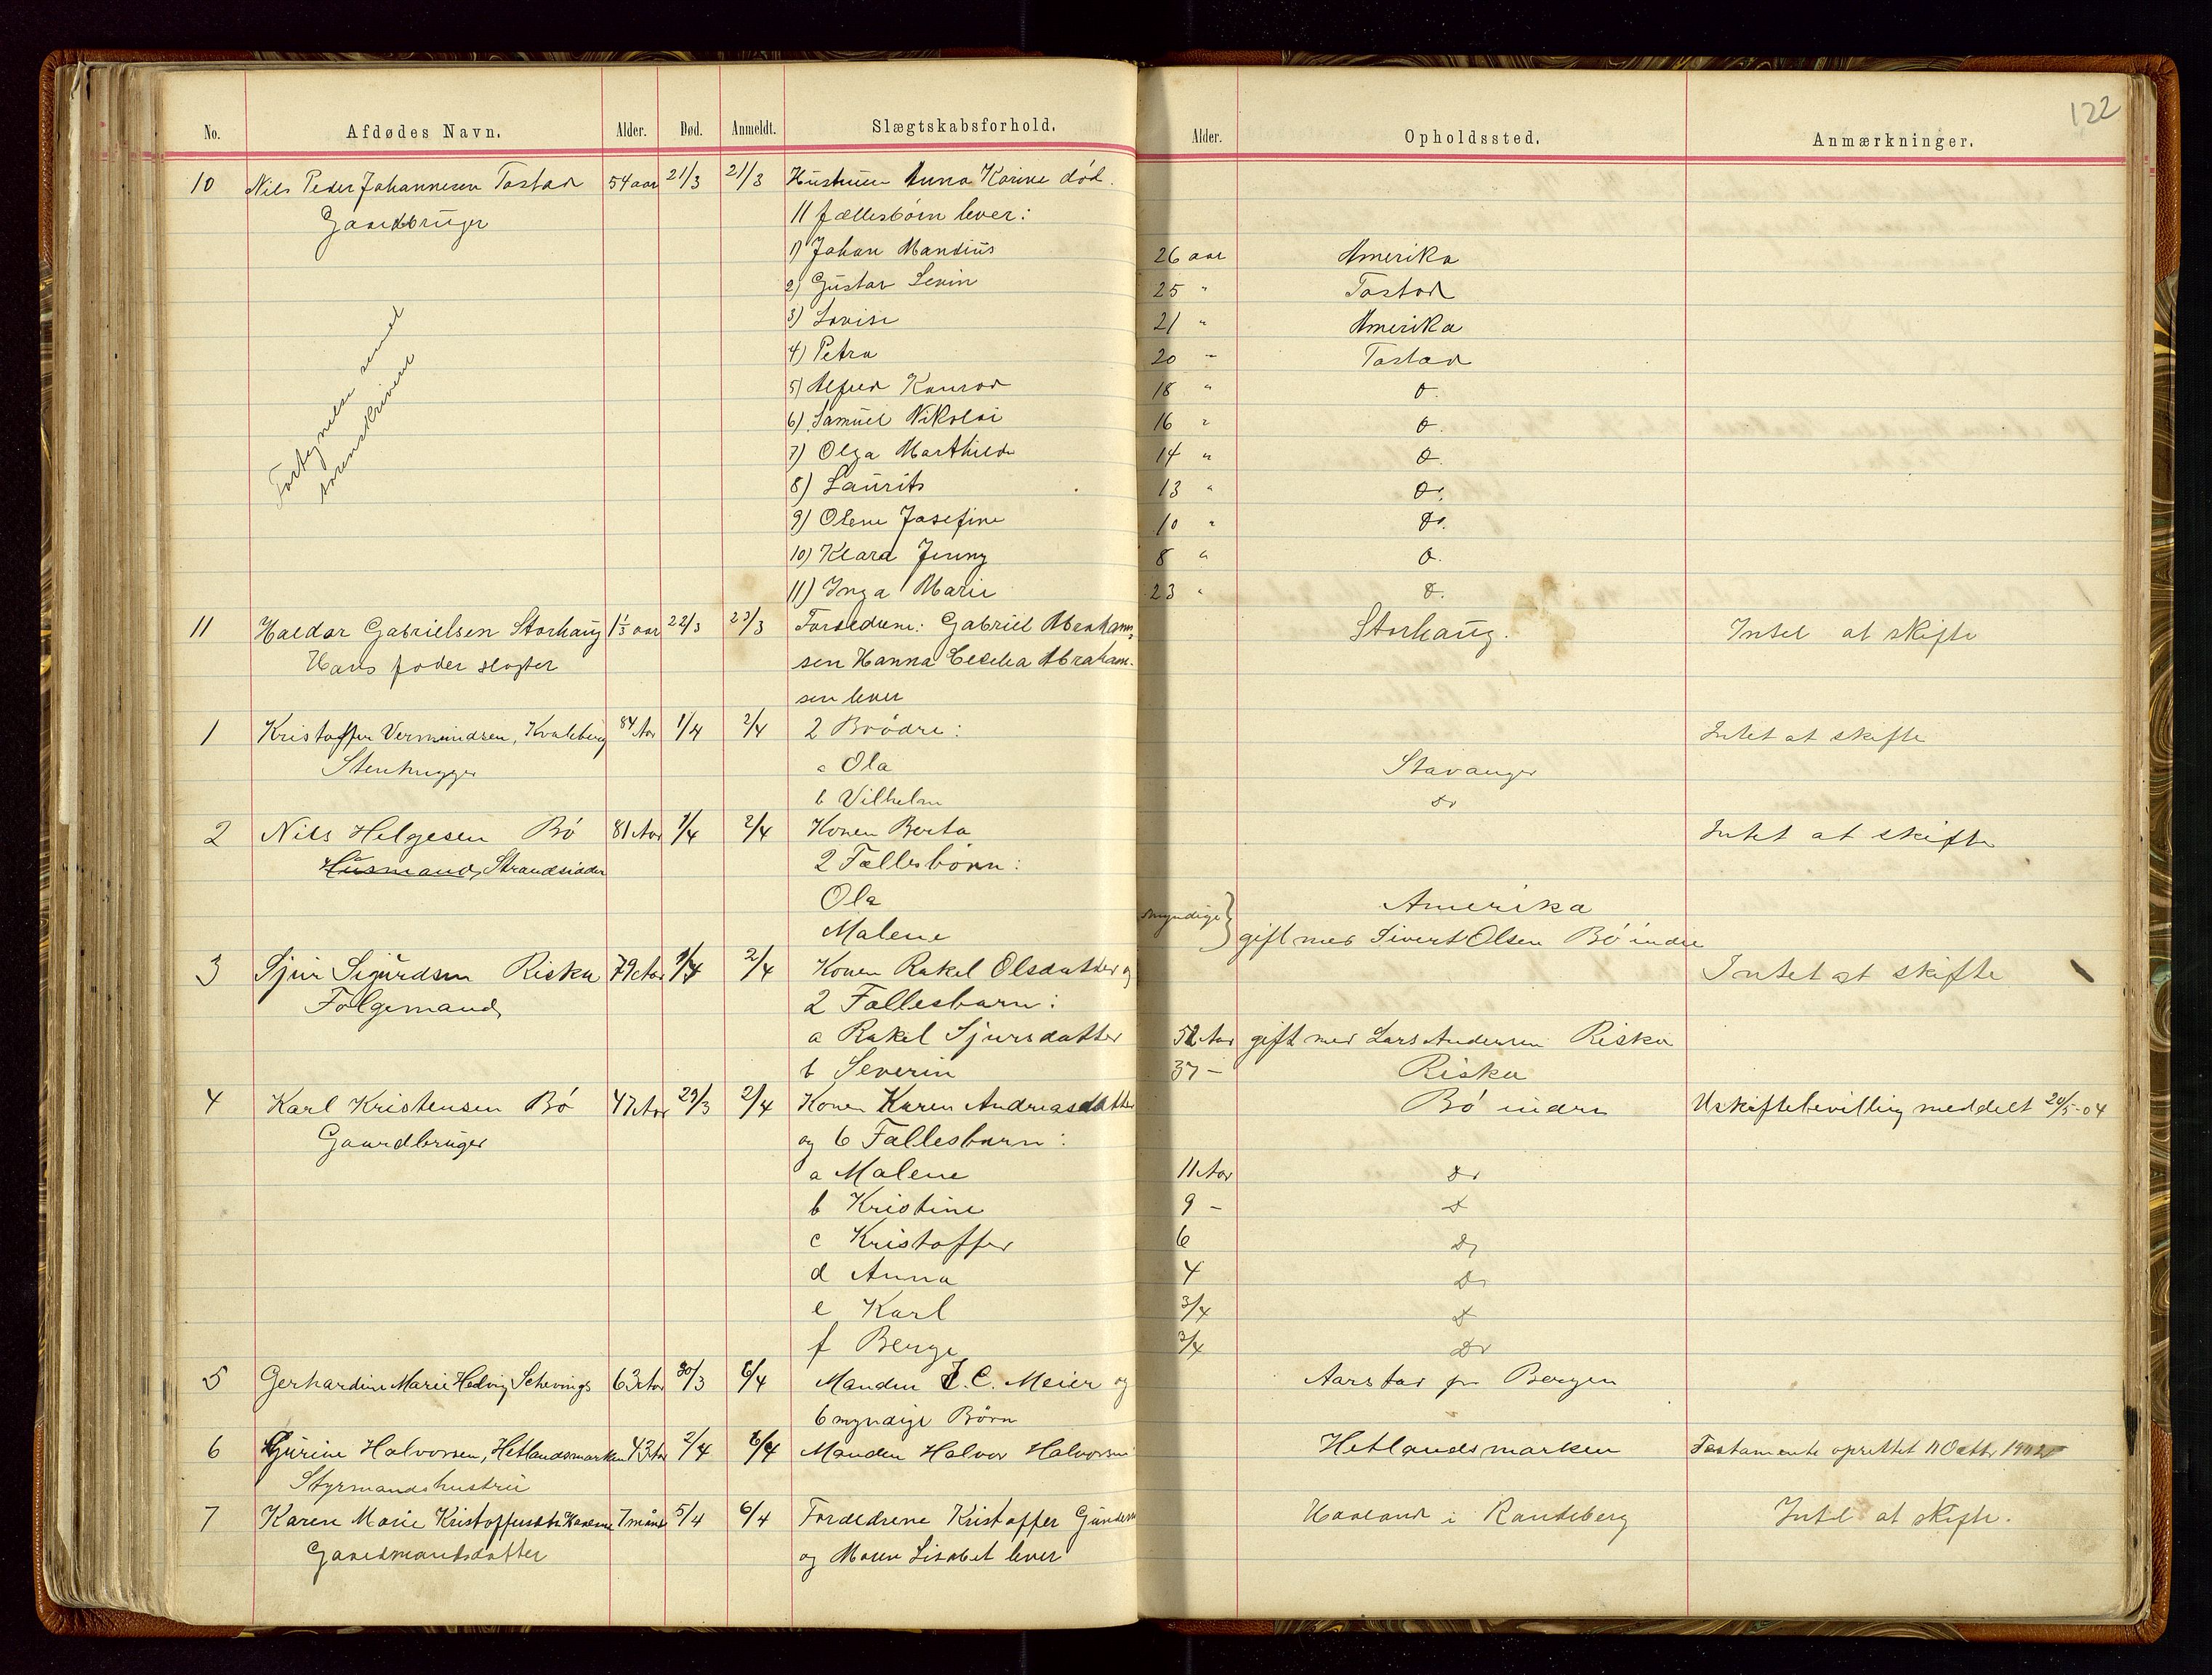 122
No. Afdødes Navn. Alder. Død. Anmeldt. Slægtskabsforhold. Alder. Opholdssted. Anmærkninger.
10 Nils Peder Johannesen Tastad 54 aar 21/3 21/3 Hustruen Anna Karine død.
Gaardbruger 11 fællesbörn lever:
1) Johan Mandius 26 aar Amerika
2) Gustav Severin 25 " Tastad
3) Lovise 21 " Amerika
4) Petra 20 - Tastad
5) Alfred Konrad 18 " do.
6) Samuel Nikolai 16 " do.
7) Olga Marthilde 14 " do.
8) Laurits 13 " do.
9) Olene Josefine 10 " do.
10) Klara Jenny 8 " do.
11) Inga Marie 23 " do.
Fortegnelse sendt
sorenskriveren
11 Haldor Gabrielsen Storhaug 1 1/3 aar 22/3 23/3 Forældrene: Gabriel Abraham- Storhaug. Intet at skifte
Hans fader slagter sen Hanna Cecilia Abraham-
sen lever
1 Kristoffer Vermundsen, Kvaleberg 84 Aar 1/4 2/4 2 Brødre: Intet at skifte
Stenhugger a Ola Stavanger
b Vilhelm do
2 Nils Helgesen Bö 81 Aar 1/4 2/4 Konen Berta Intet at skifte
Husmand, Strandsidder 2 Fællesbörn:
Ola myndige Amerika
Malene gift med Sivert Olsen Bö indre
3 Sjur Sigurdsen Riska 79 Aar 1/4 2/4 Konen Rakel Olsdatter og Intet at skifte
Folgemand 2 Fællesbarn:
a Rakel Sjursdatter 52 Aar gift med Lars Andersen Riska
b Severin 37 - Riska
4 Karl Kristensen Bö 47 Aar 29/3 2/4 Konen Karen Andreasdatter Bö indre Uskiftebevilling meddelt 20/5-04
Gaardbruger og 6 Fællesbarn:
a Malene 11 Aar do
b Kristine 9 - do
c Kristoffer 6 do
d Anna 4 do
e Karl 3/4 do
f Berge 3/4 do
5 Gerhardine Marie Hedvig Schevings 63 Aar 30/3 6/4 Manden J. C. Meier og Aarstad pr Bergen
6 myndige Börn
6 Gurine Halvorsen, Hetlandsmarken 43 Aar 2/4 6/4 Manden Halvor Halvorsen Hetlandsmarken Testamente oprettet 11 Octbr 1902
Styrmandshustru
7 Karen Marie Kristoffersdtr Haaland 7 mdnr 5/4 6/4 Forældrene Kristoffer Gundersen Haaland i Randeberg Intet at skifte.
Gaardmandsdatter og Maren Lisabet lever